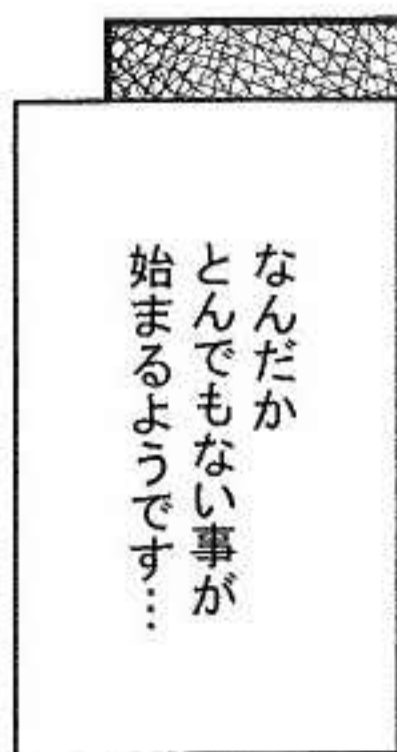 なんだか
とんでもない事が
始まるようです…